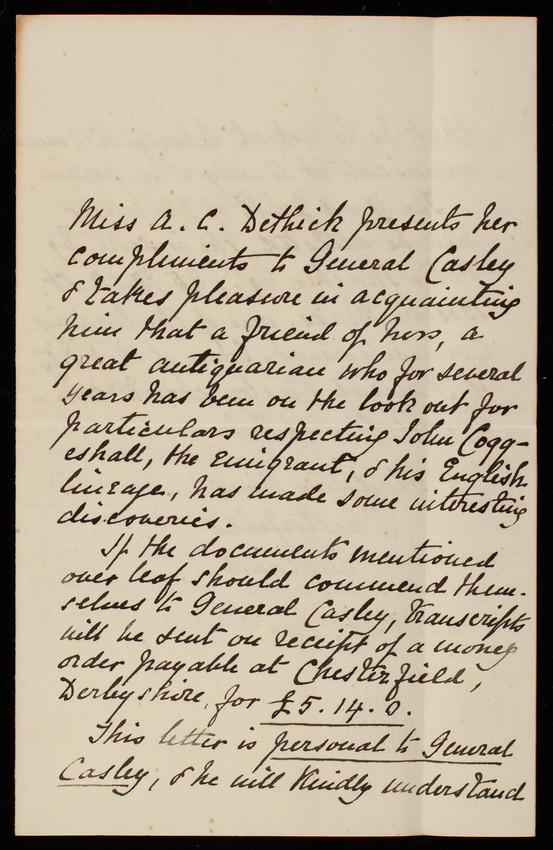 Miss A. C. Dethick presents her
compliments to General Casley
& takes pleasure in acquainting
him that a friend of hers, a
great antiquarian who for several
years has been on the look out for
particulars respecting John Cogg-
eshall, the emigrant, & his English
lineage, has made some interesting
discoveries.
If the documents mentioned
over leaf should commend them-
selves to General Casley, transcripts
will be sent on receipt of a money
order payable at Chesterfield,
Derbyshire, for £5.14.0.
This letter is personal to General
Casley, & he will kindly understand